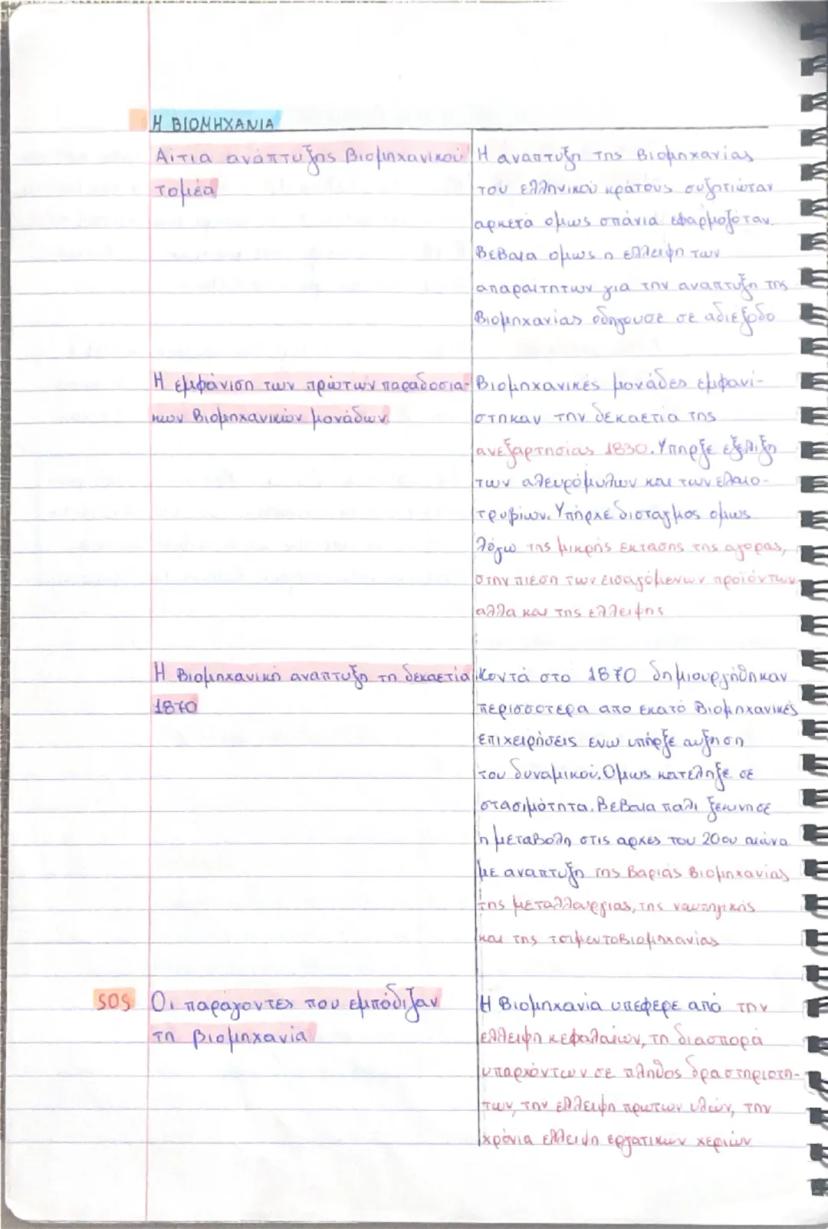 Η ΒΙΟΜΗΧΑΝΙΑ
Αίτια ανάπτυξης βιομηχανικού
τομέα
Η αναπτυξη της βιομηχανίας
του ελληνικού κράτους συζητιώταν
αρκετά ομως σπάνια εφαρμοζόταν.
Βεβαια ομως η ελλειψη των
απαραιτητων για την αναπτυξη της
βιομηχανίας οδηγουσε σε αδιεξοδο
Η εμφάνιση των πρώτων παραδοσια-
κων βιομηχανικών μονάδων
Βιομηχανικές μονάδες εμφανί-
στηκαν την δεκαετία της
ανεξαρτησίας 1830. Υπηρξε εξελιξη
των αλευρόμυλων και των ελαιο-
τρυβίων. Υπήρχε δισταγμος ομως
λόγω της μικρής εκτασης της αγορας,
στην πιεση των εισαγόμενων προϊόντων
αλλα και της ελλειψης
Η βιομηχανική αναπτυξη τη δεκαετία
1870
Κοντά στο 1870 δημιουργήθηκαν
περισσοτερα απο εκατό βιομηχανικές
επιχειρήσεις ενω υπήρξε αυξηση
του δυναμικού. Ομως κατεληξε σε
στασιμότητα. Βεβαια παλι ξεκινησε
η μεταβολη στις αρχες του 20ου αιώνα
με αναπτυξη της βαριάς βιομηχανίας
της μεταλλουργιας, της ναυπηγικής
και της τσιμεντοβιομηχανίας
SOS Οι παράγοντες που εμπόδιζαν
τη βιομηχανία
Η βιομηχανία υπεφερε από την
ελλειψη κεφαλαίων, τη διασπορά
υπαρχόντων σε πληθος δραστηριοτή-
των, την ελλειψη πρωτων υλών, την
χρόνια ελλειψη εργατικων χεριών